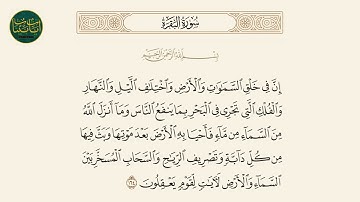 سُورَةُ البَقَرَةِ
بِسْمِ اللَّهِ الرَّحْمَٰنِ الرَّحِيمِ
إِنَّ فِي خَلْقِ السَّمَٰوَٰتِ وَالْأَرْضِ وَاخْتِلَٰفِ الَّيْلِ وَالنَّهَارِ
وَالْفُلْكِ الَّتِي تَجْرِي فِي الْبَحْرِ بِمَا يَنفَعُ النَّاسَ وَمَا أَنزَلَ اللَّهُ
مِنَ السَّمَاءِ مِن مَّاءٍ فَأَحْيَا بِهِ الْأَرْضَ بَعْدَ مَوْتِهَا وَبَثَّ فِيهَا
مِن كُلِّ دَابَّةٍ وَتَصْرِيفِ الرِّيَٰحِ وَالسَّحَابِ الْمُسَخَّرِ بَيْنَ
السَّمَاءِ وَالْأَرْضِ لَآيَٰتٍ لِّقَوْمٍ يَعْقِلُونَ ١٦٤